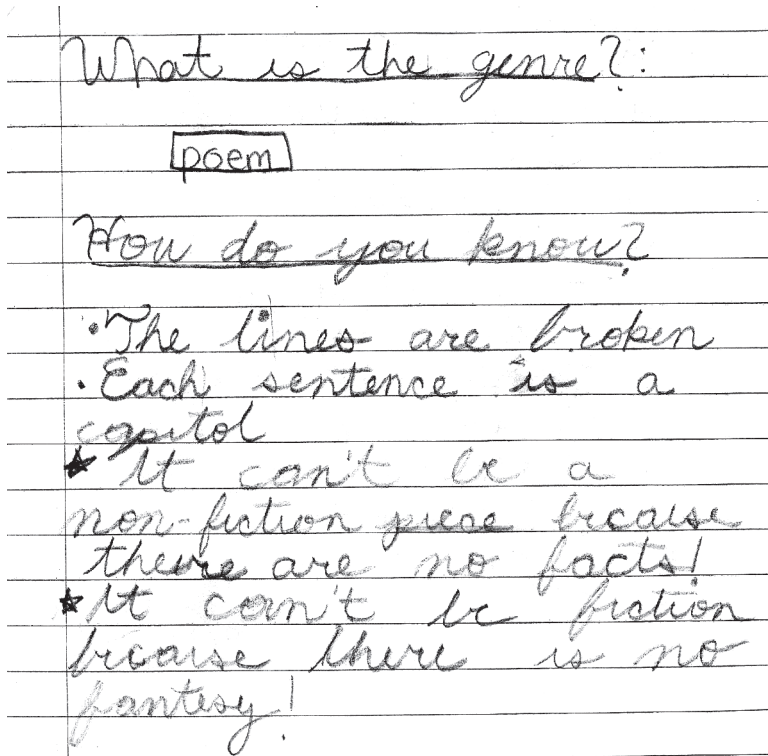 What is the genre?:
poem
How do you know?
• The lines are broken
• Each sentence is a
capitol
★ It can't be a
non-fiction piece because
there are no facts!
★ It can't be fiction
because there is no
fantesy!